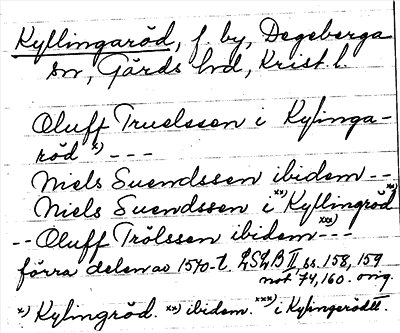 Kyllingaröd, f. by, Degeberga
sn, Gärds hd, Krist. l.
Oluff Truelssen i Kylinga-
röd x) - - -
Niels Suendssen ibidem - -
Niels Suendssen i xx) Kyllingröd xx)
- - Oluff Trölssen ibidem xxx) - - -
förra delen av 1540-t. LSLB II, ss. 158, 159
not 74, 160. orig.
x) Kylingröd. xx) ibidem. xxx) i Kylingerödtt.